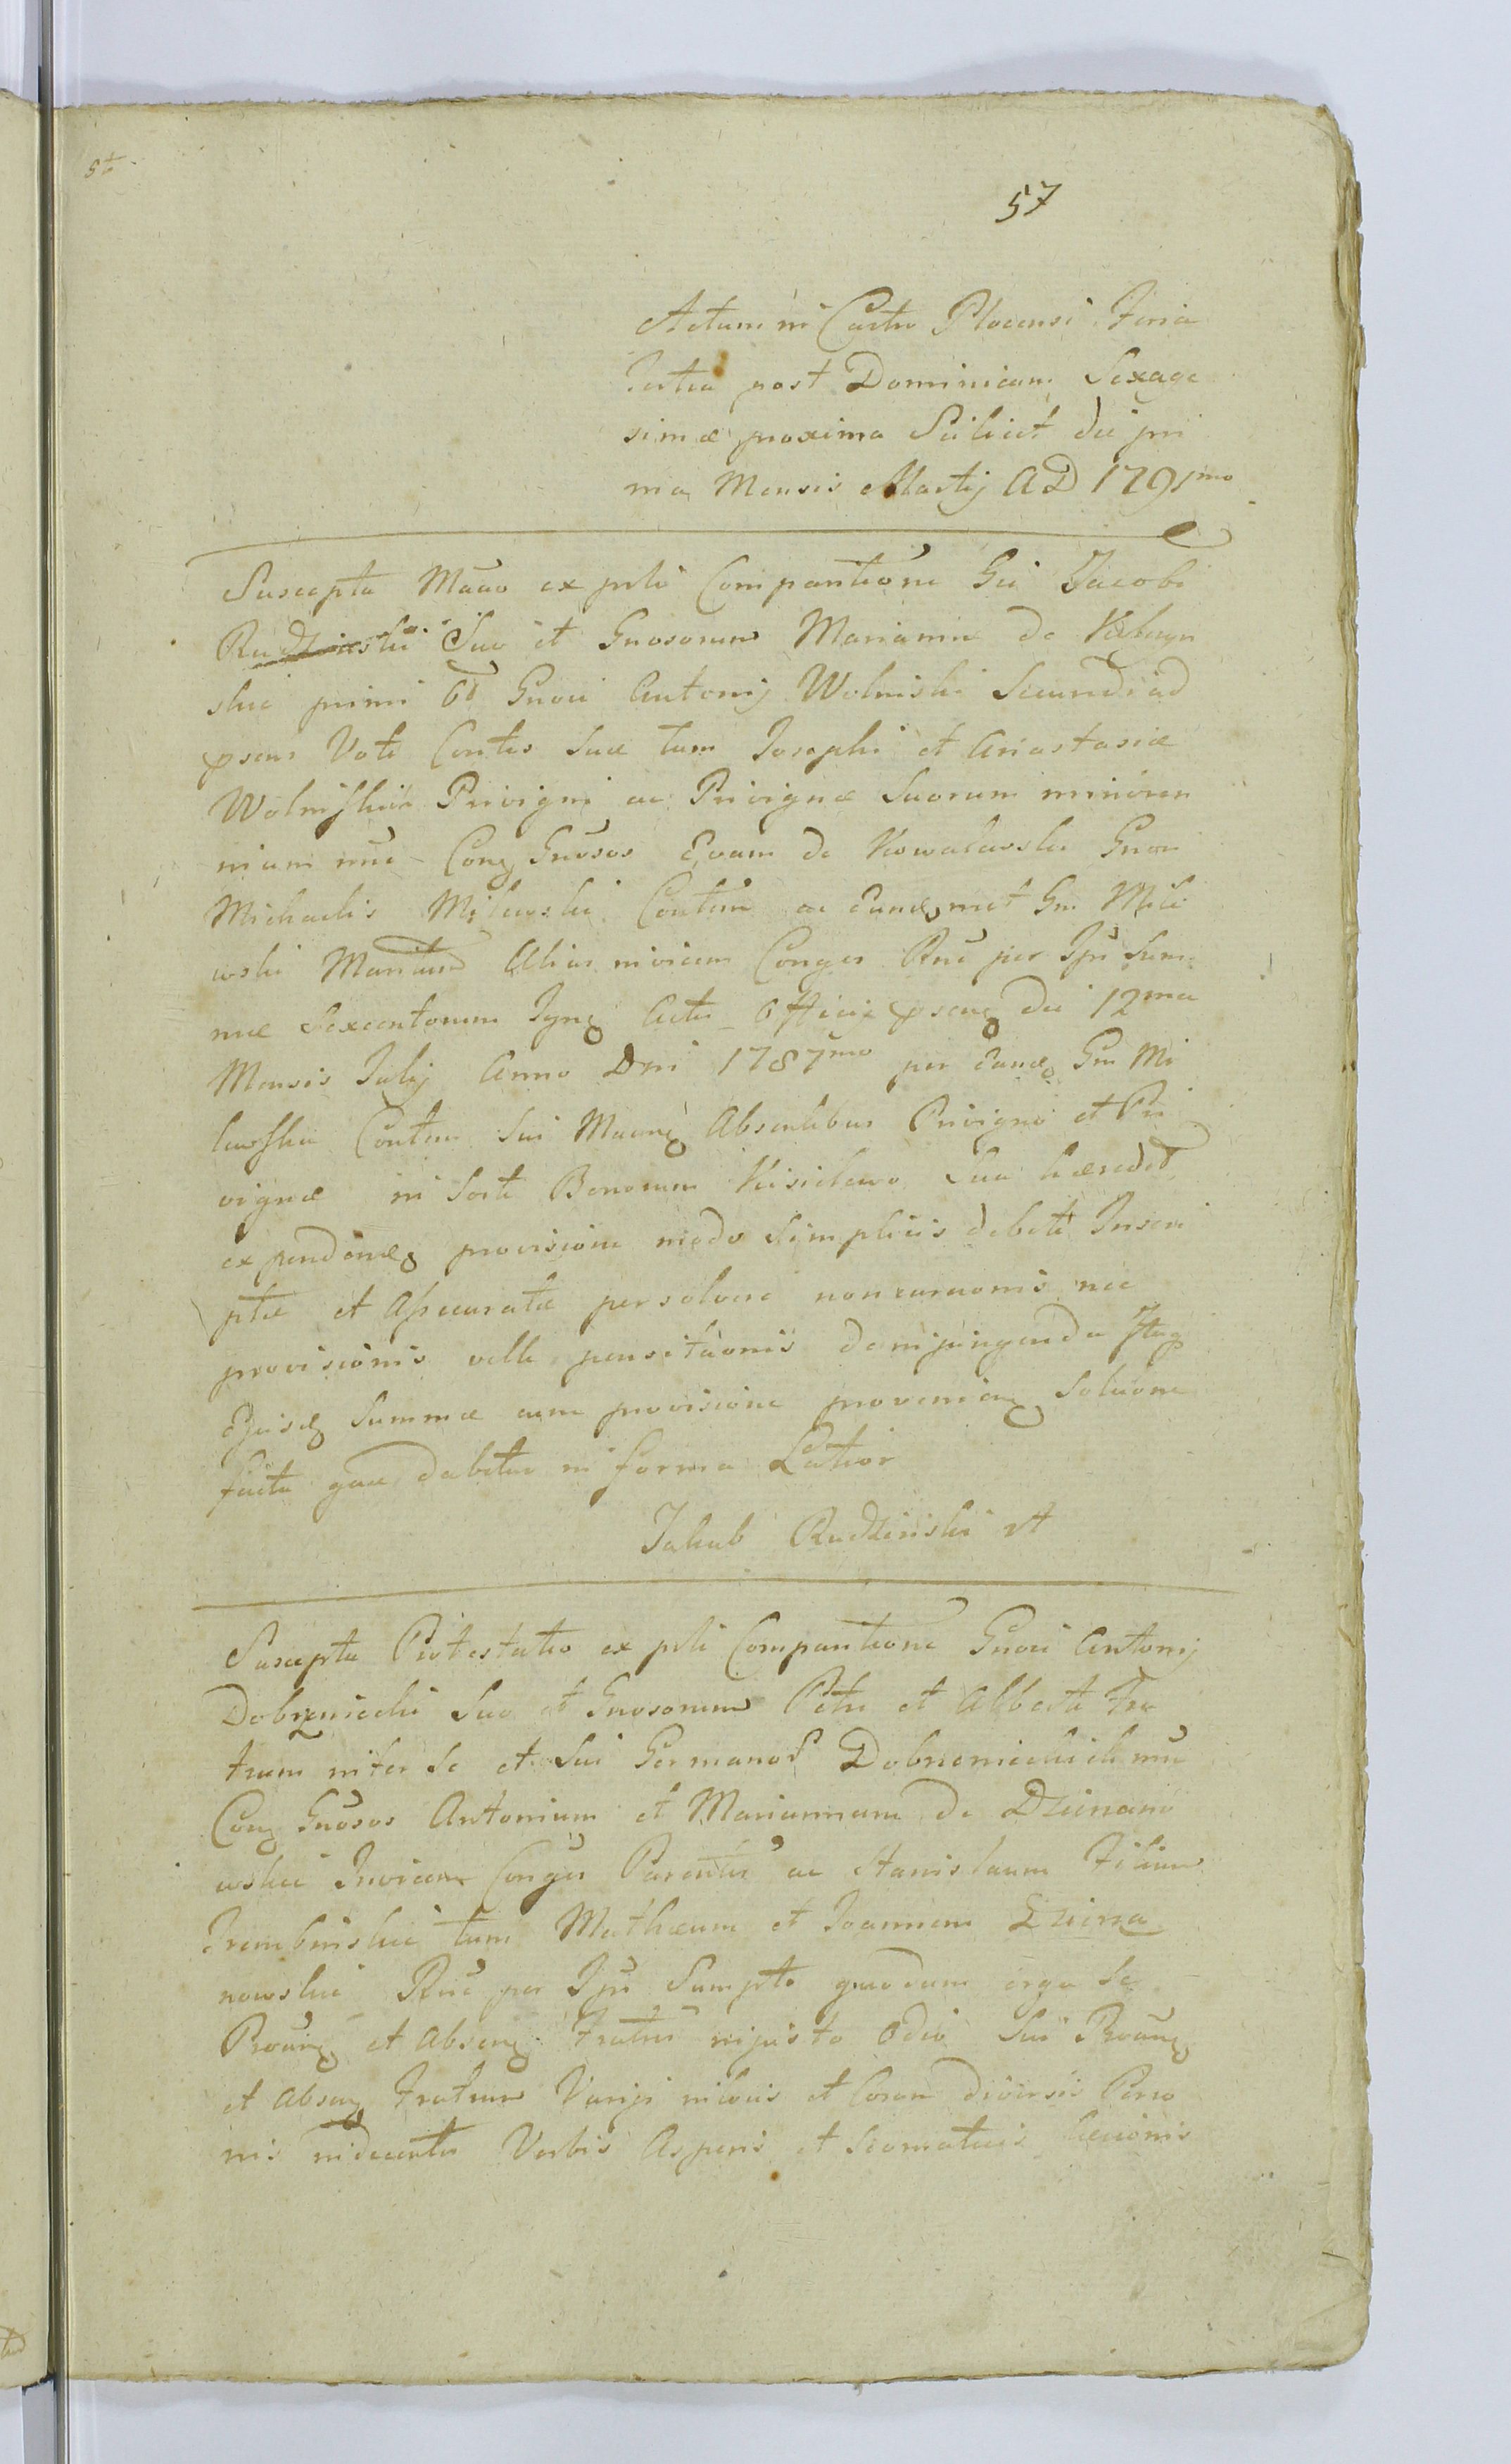 57
Actum in Castro Plocensi Feria
Tertia post Dominicam Sexage
simæ proxima Scilicet die pri
ma Mensis Martij AD 1791mo
Suscepta Mãao ex psli Compantione Gñi Jacobi
Rudzinski Suo et Gnosorum Marianne de
skie primi Gnosi Antonij Wolmiski Secundi ad
psens Voti Contis Suæ tum Josephi et Anastasiæ
Wolmiskich Privigni ac Privignæ Suorum minoren
nium nnẽ Cong Gnosos Evam de Kowalewskie Gnosi
Michaelis Milewski Contem ac eundmet Gm Mile
wski Maritum Alias invicem Conges Rñe per Ipñ Sum
mæ Sexcentorum Actis Officii pseng die 12ma
Mensis Julij Anno Dñi 1787mo per eund Gm Mi
lewskie Contem Sui Absentibus Privigno et Pri
vignæ in Sorte Bonorum Kisielewo Sua hæredit
ex provisione modo Simplicis debiti Inscri
ptæ et Assecuratæ persolvere noncuraonis nec
provisionis velle pensitaonis
Ejusd Summæ cum provisione provenien Soluone
facta quæ dabitur in forma Latior
Jakub Rudzinski
Suscepta Protestatio ex psli Compantione Gnosi Antonij
Dobrzenieckie Suo et Gnosorum Petri et Alberti Fra
trum inter Se et Sui Germanor Dobrzenieckich nnẽ
Cong Gnosos Antonium et Mariannam de Dzieriano
wskie Invicem Conges Parentes ac Stanislaum Filium
Trembinskie tum Mathæum et Joannem Dziersza
nowskie Rñe per Ipñ Sumpto quodam erga Se
et Absen Fratres injusto Odio Sui
et Absen Fratrum Varijs in locis et Coram diversis Perso
nis indecentes Verbis Asperis et Scomaticis